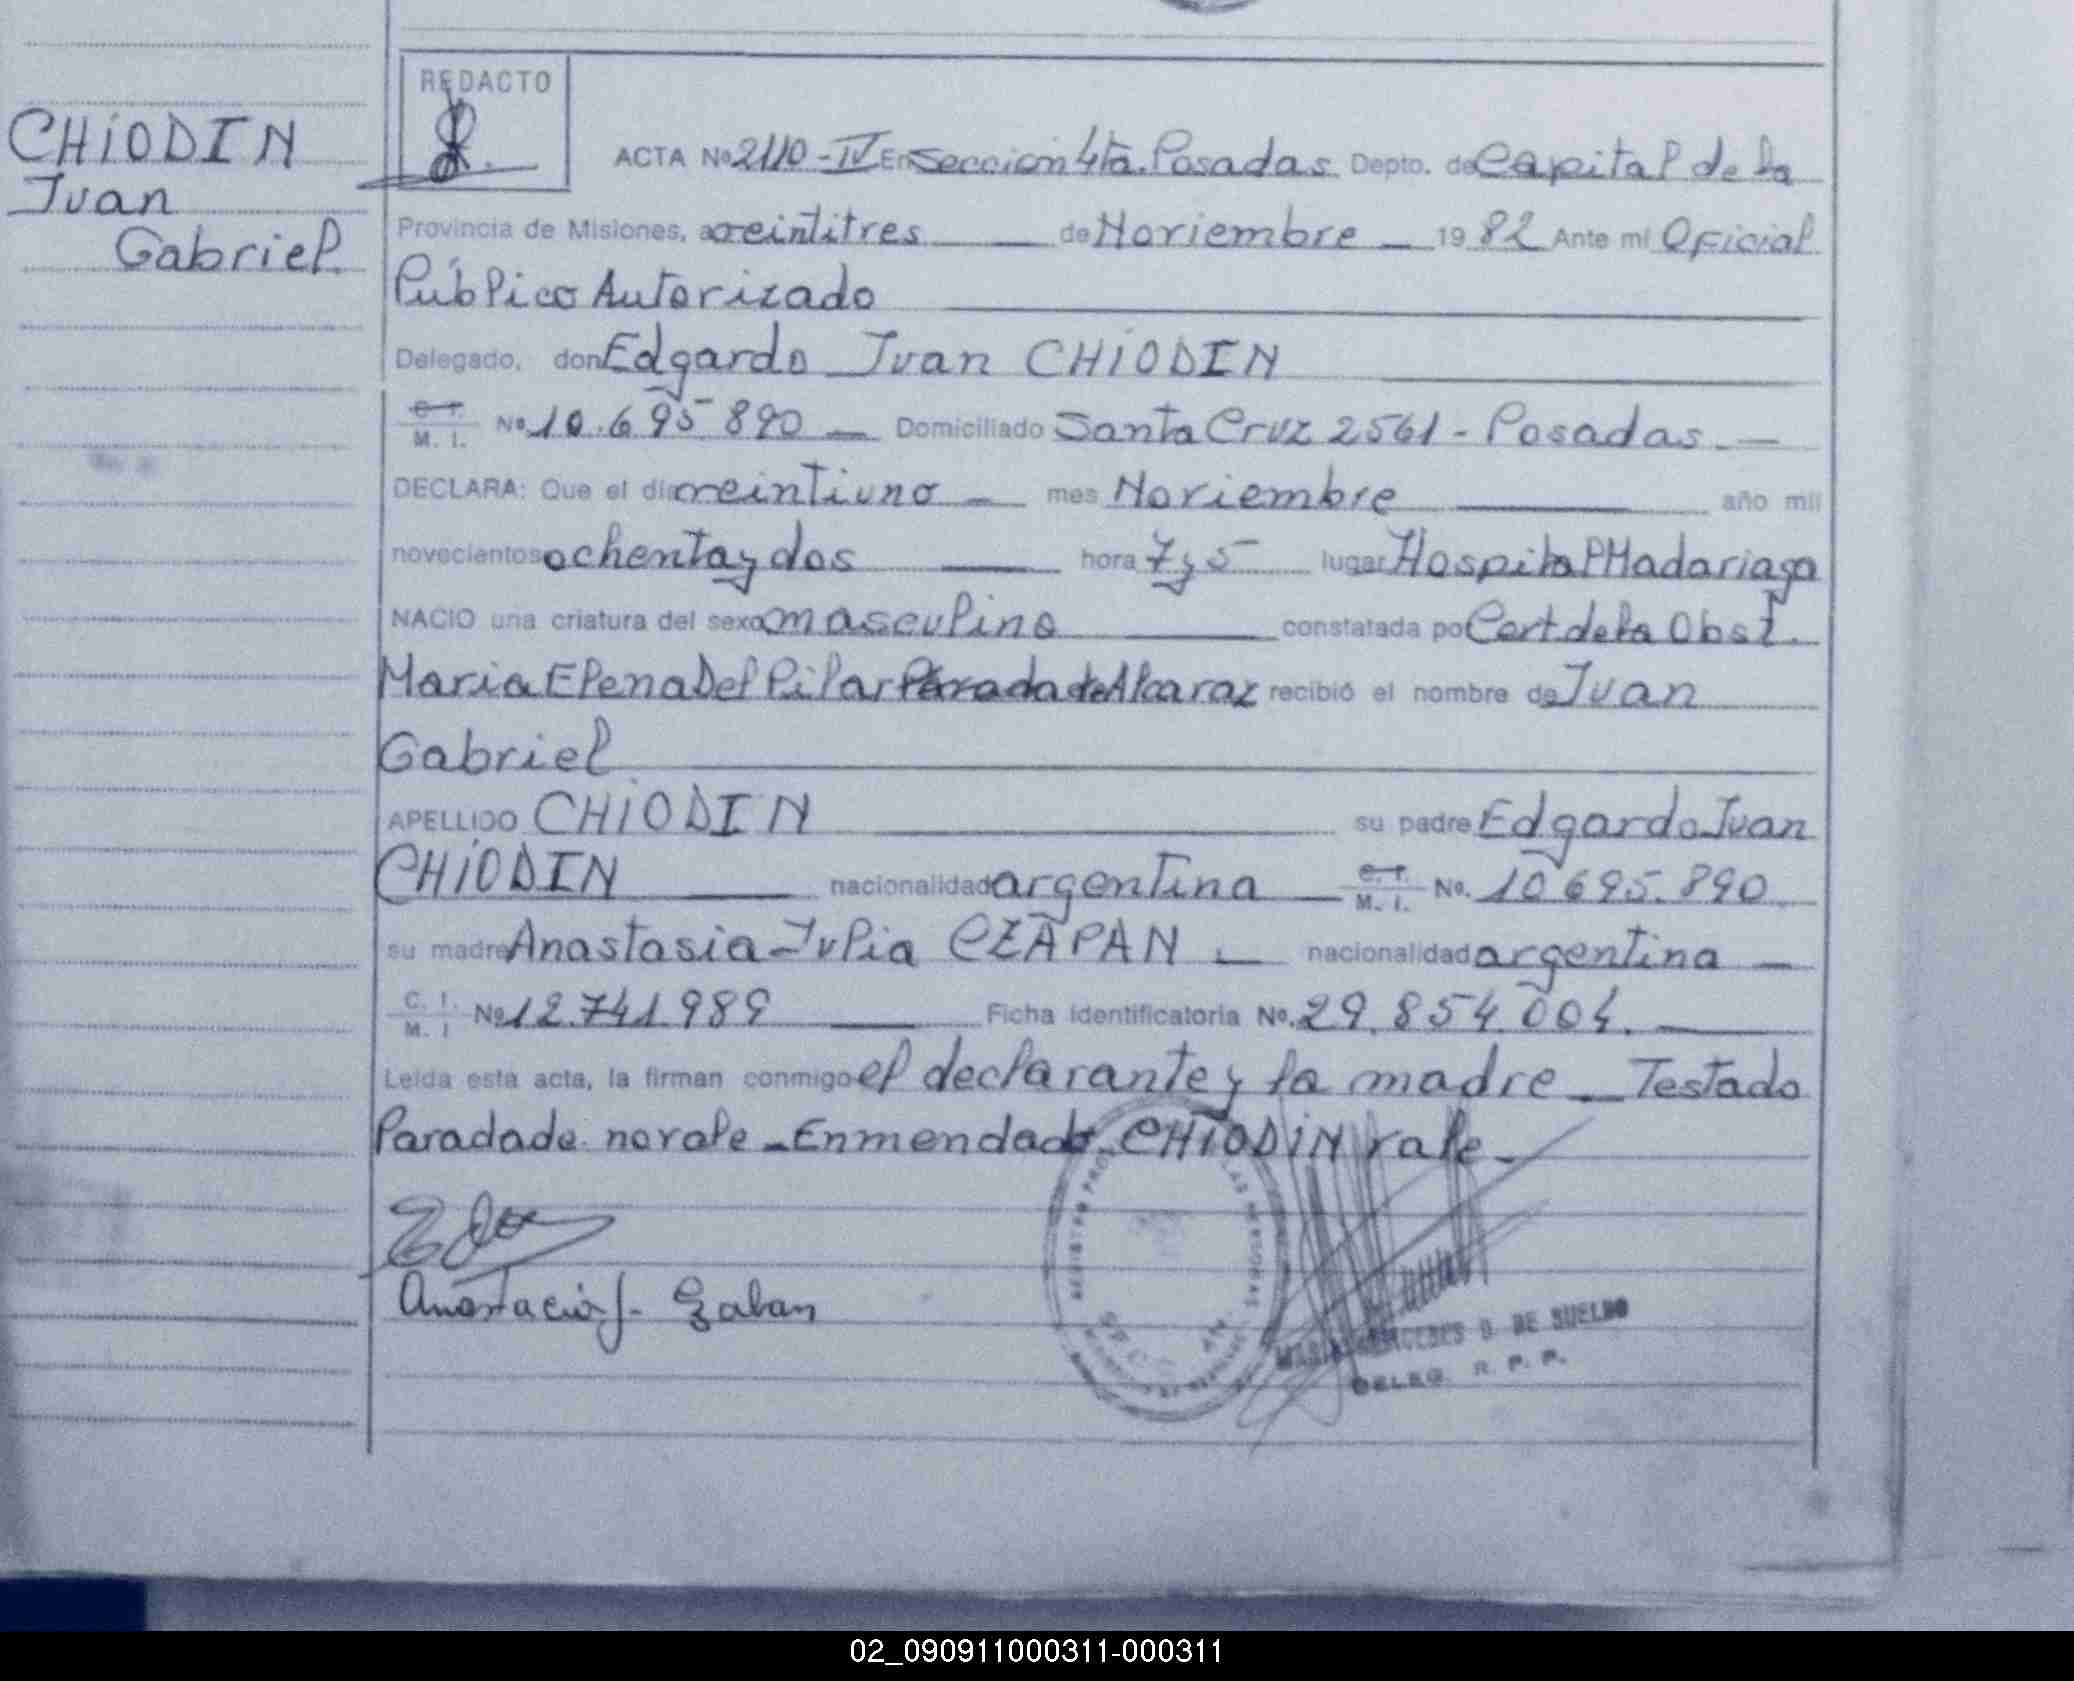 CHIODIN
Juan
Gabriel
REDACTO
ACTA Nº 2110-IV En Seccion 4ta. Posadas Depto. de Capital de la
Provincia de Misiones, a veintitres de Noviembre 1982 Ante mi Oficial
Público Autorizado
Delegado, don Edgardo Juan CHIODIN
C. I.
M. I. Nº 10.695 890 Domiciliado Santa Cruz 2561 - Posadas
DECLARA: Que el dia veintiuno mes Noviembre año mil
novecientos ochenta y dos hora 7 y 5 lugar Hospital Madariaga
NACIO una criatura del sexo masculino constatada po Cert de la Obst.
Maria Elena Del Pilar Parada de Alcaraz recibió el nombre de Juan
Gabriel
APELLIDO CHIODIN su padre Edgardo Juan
CHIODIN nacionalidad argentina C. I.
M. I. No. 10 695.890
su madre Anastasia Julia CZAPAN nacionalidad argentina
C. I.
M. I Nº 12.741.989 Ficha identificatoria No. 29.854.004.
Leida esta acta, la firman conmigo el declarante y la madre Testado
Parada de no vale - Enmendado CHIODIN vale
DE SUELDO
DELEG. R. P. P.
02_090911000311-000311